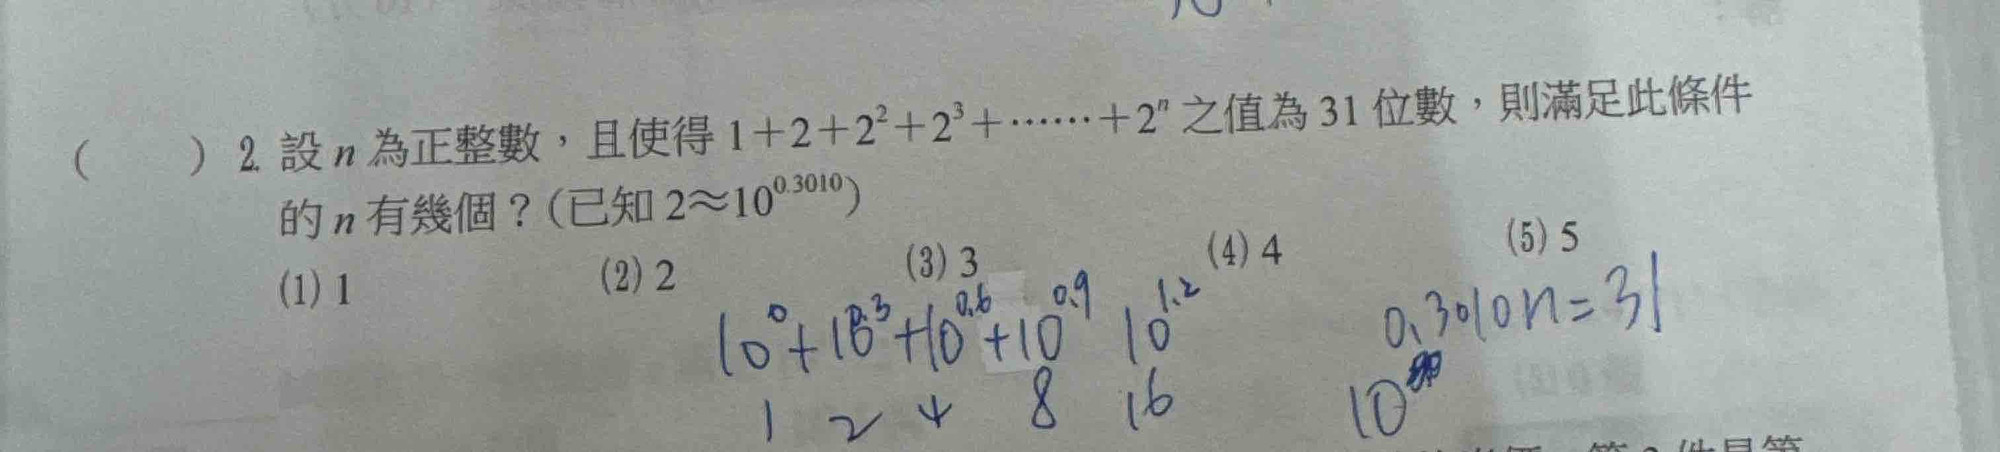 (　　) 2. 設 n 為正整數，且使得 1+2+2²+2³+⋯⋯+2ⁿ 之值為 31 位數，則滿足此條件
的 n 有幾個？(已知 2≈10^0.3010)
(1) 1 (2) 2 (3) 3 (4) 4 (5) 5
10^0+10^0.3+10^0.6+10^0.9 10^1.2 0.3010n=31
1 2 4 8 16 10